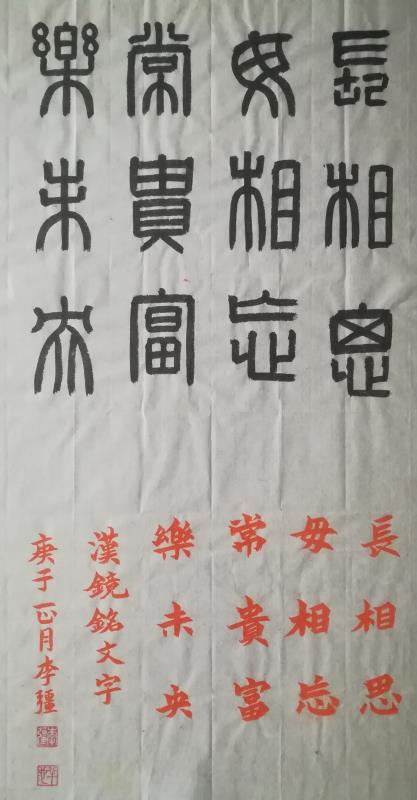 長相思
毋相忘
常貴富
樂未央
長相思
毋相忘
常貴富
樂未央
漢鏡銘文字
庚子正月李疆